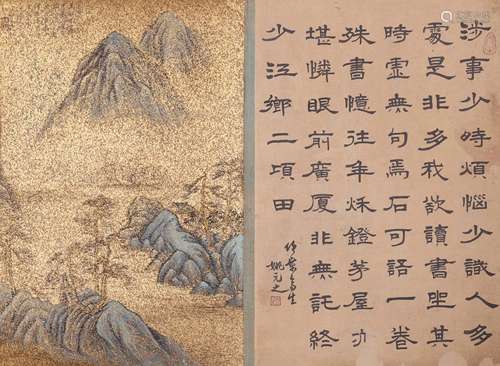 涉事少時煩惱少識人多
處是非多我欲讀書坐其
時虛無句焉石可語一卷
殊書憶往年秌鐙茅屋功
堪憐眼前廣厦非無託終
少江鄉二頃田
姚元之